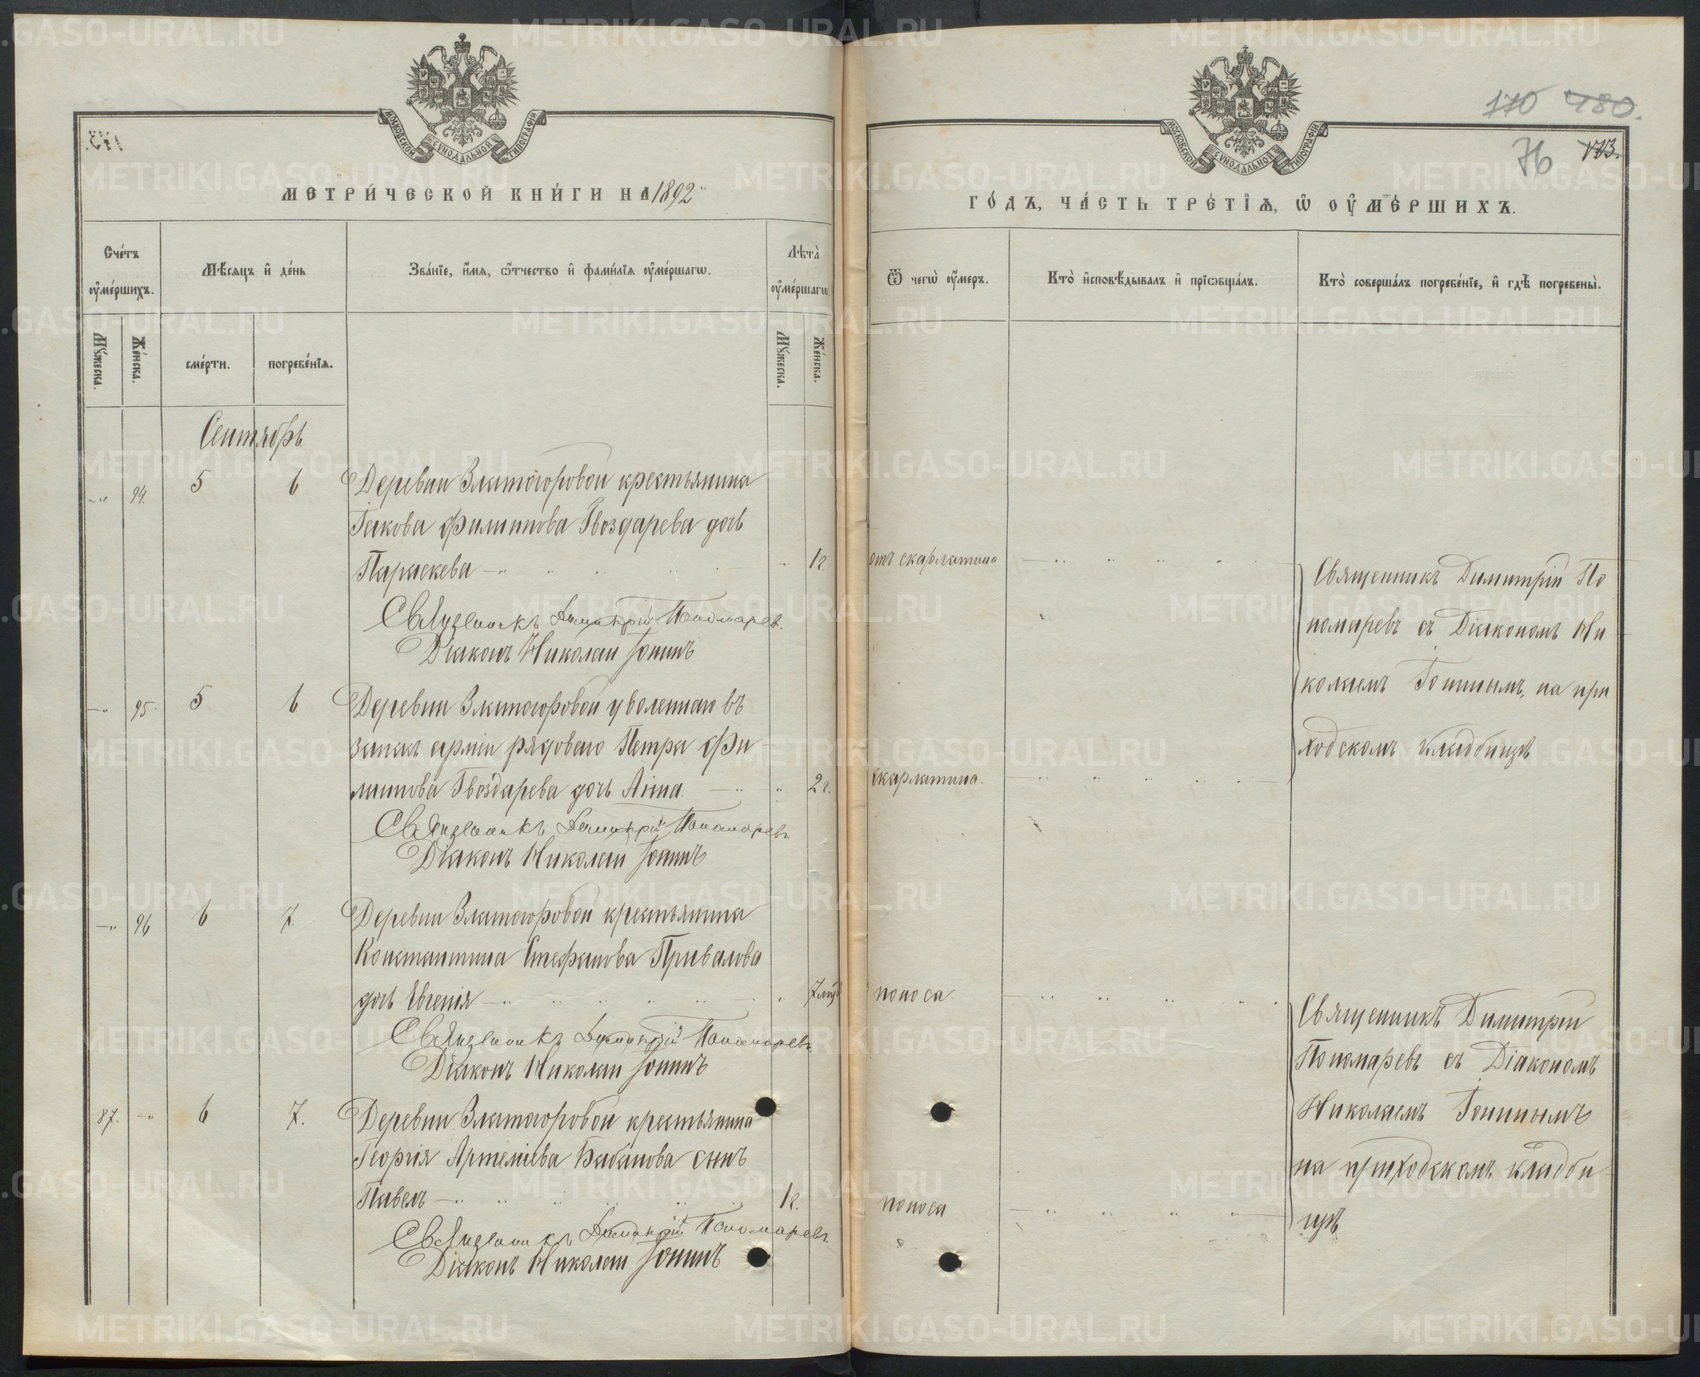 МЕТРИ́ЧЕСКОЙ КНИ́ГИ НА 1892
Сче́тъ ᲂу҆ме́ршихъ.
Мѣ́сяцъ и҆ де́нь
Зва́нїе, и҆́мя, ѻ҆́тчество и҆ фами́лїя ᲂу҆ме́ршагѡ.
Лѣта̀ ᲂу҆ме́ршагѡ
Мꙋ́жеска.
Же́нска.
сме́рти.
погребе́нїя.
Мꙋ́жеска.
Же́нска.
Сентябрь
94. 5 6 Деревни Златогоровой крестьянина
Іакова Филиппова Гвоздарева дочь
Параскева 1 г.
Священникъ Димитрій Пономаревъ
Діаконъ Николай Гонинъ
95. 5 6 Деревни Златогоровой уволеннаго въ
запасъ арміи рядоваго Петра Фи
липпова Гвоздарева дочь Анна 2 г.
Священникъ Димитрій Пономаревъ
Діаконъ Николай Гонинъ
96 6 7. Деревни Златогоровой крестьянина
Константина Стефанова Привалова
дочь Евгенія 7 мѣс
Священникъ Димитрій Пономаревъ
Діаконъ Николай Гонинъ
87. 6 7. Деревни Златогоровой крестьянина
Георгія Артеміева Бабанова сынъ
Павелъ 1 г.
Священникъ Димитрій Пономаревъ
Діаконъ Николай Гонинъ
170 180.
76 173.
ГО́ДЪ, ЧА́СТЬ ТРЕ́ТІЯ, Ѡ ОУ҆МЕ́РШИХЪ.
Ѿ чегѡ̀ ᲂу҆́меръ.
Кто̀ и҆сповѣ́дывалъ и҆ прїѡбща́лъ.
Кто̀ соверша́лъ погребе́нїе, и҆ гдѣ̀ погребены̀.
отъ скарлатина
Священникъ Димитрій По
номаревъ съ Діакономъ Ни
колаемъ Гонинымъ, на при
ходскомъ кладбищѣ
скарлатина.
поноса.
Священникъ Димитрій
Пономаревъ съ Діакономъ
Николаемъ Гонинымъ
на приходскомъ кладби
щѣ
поноса